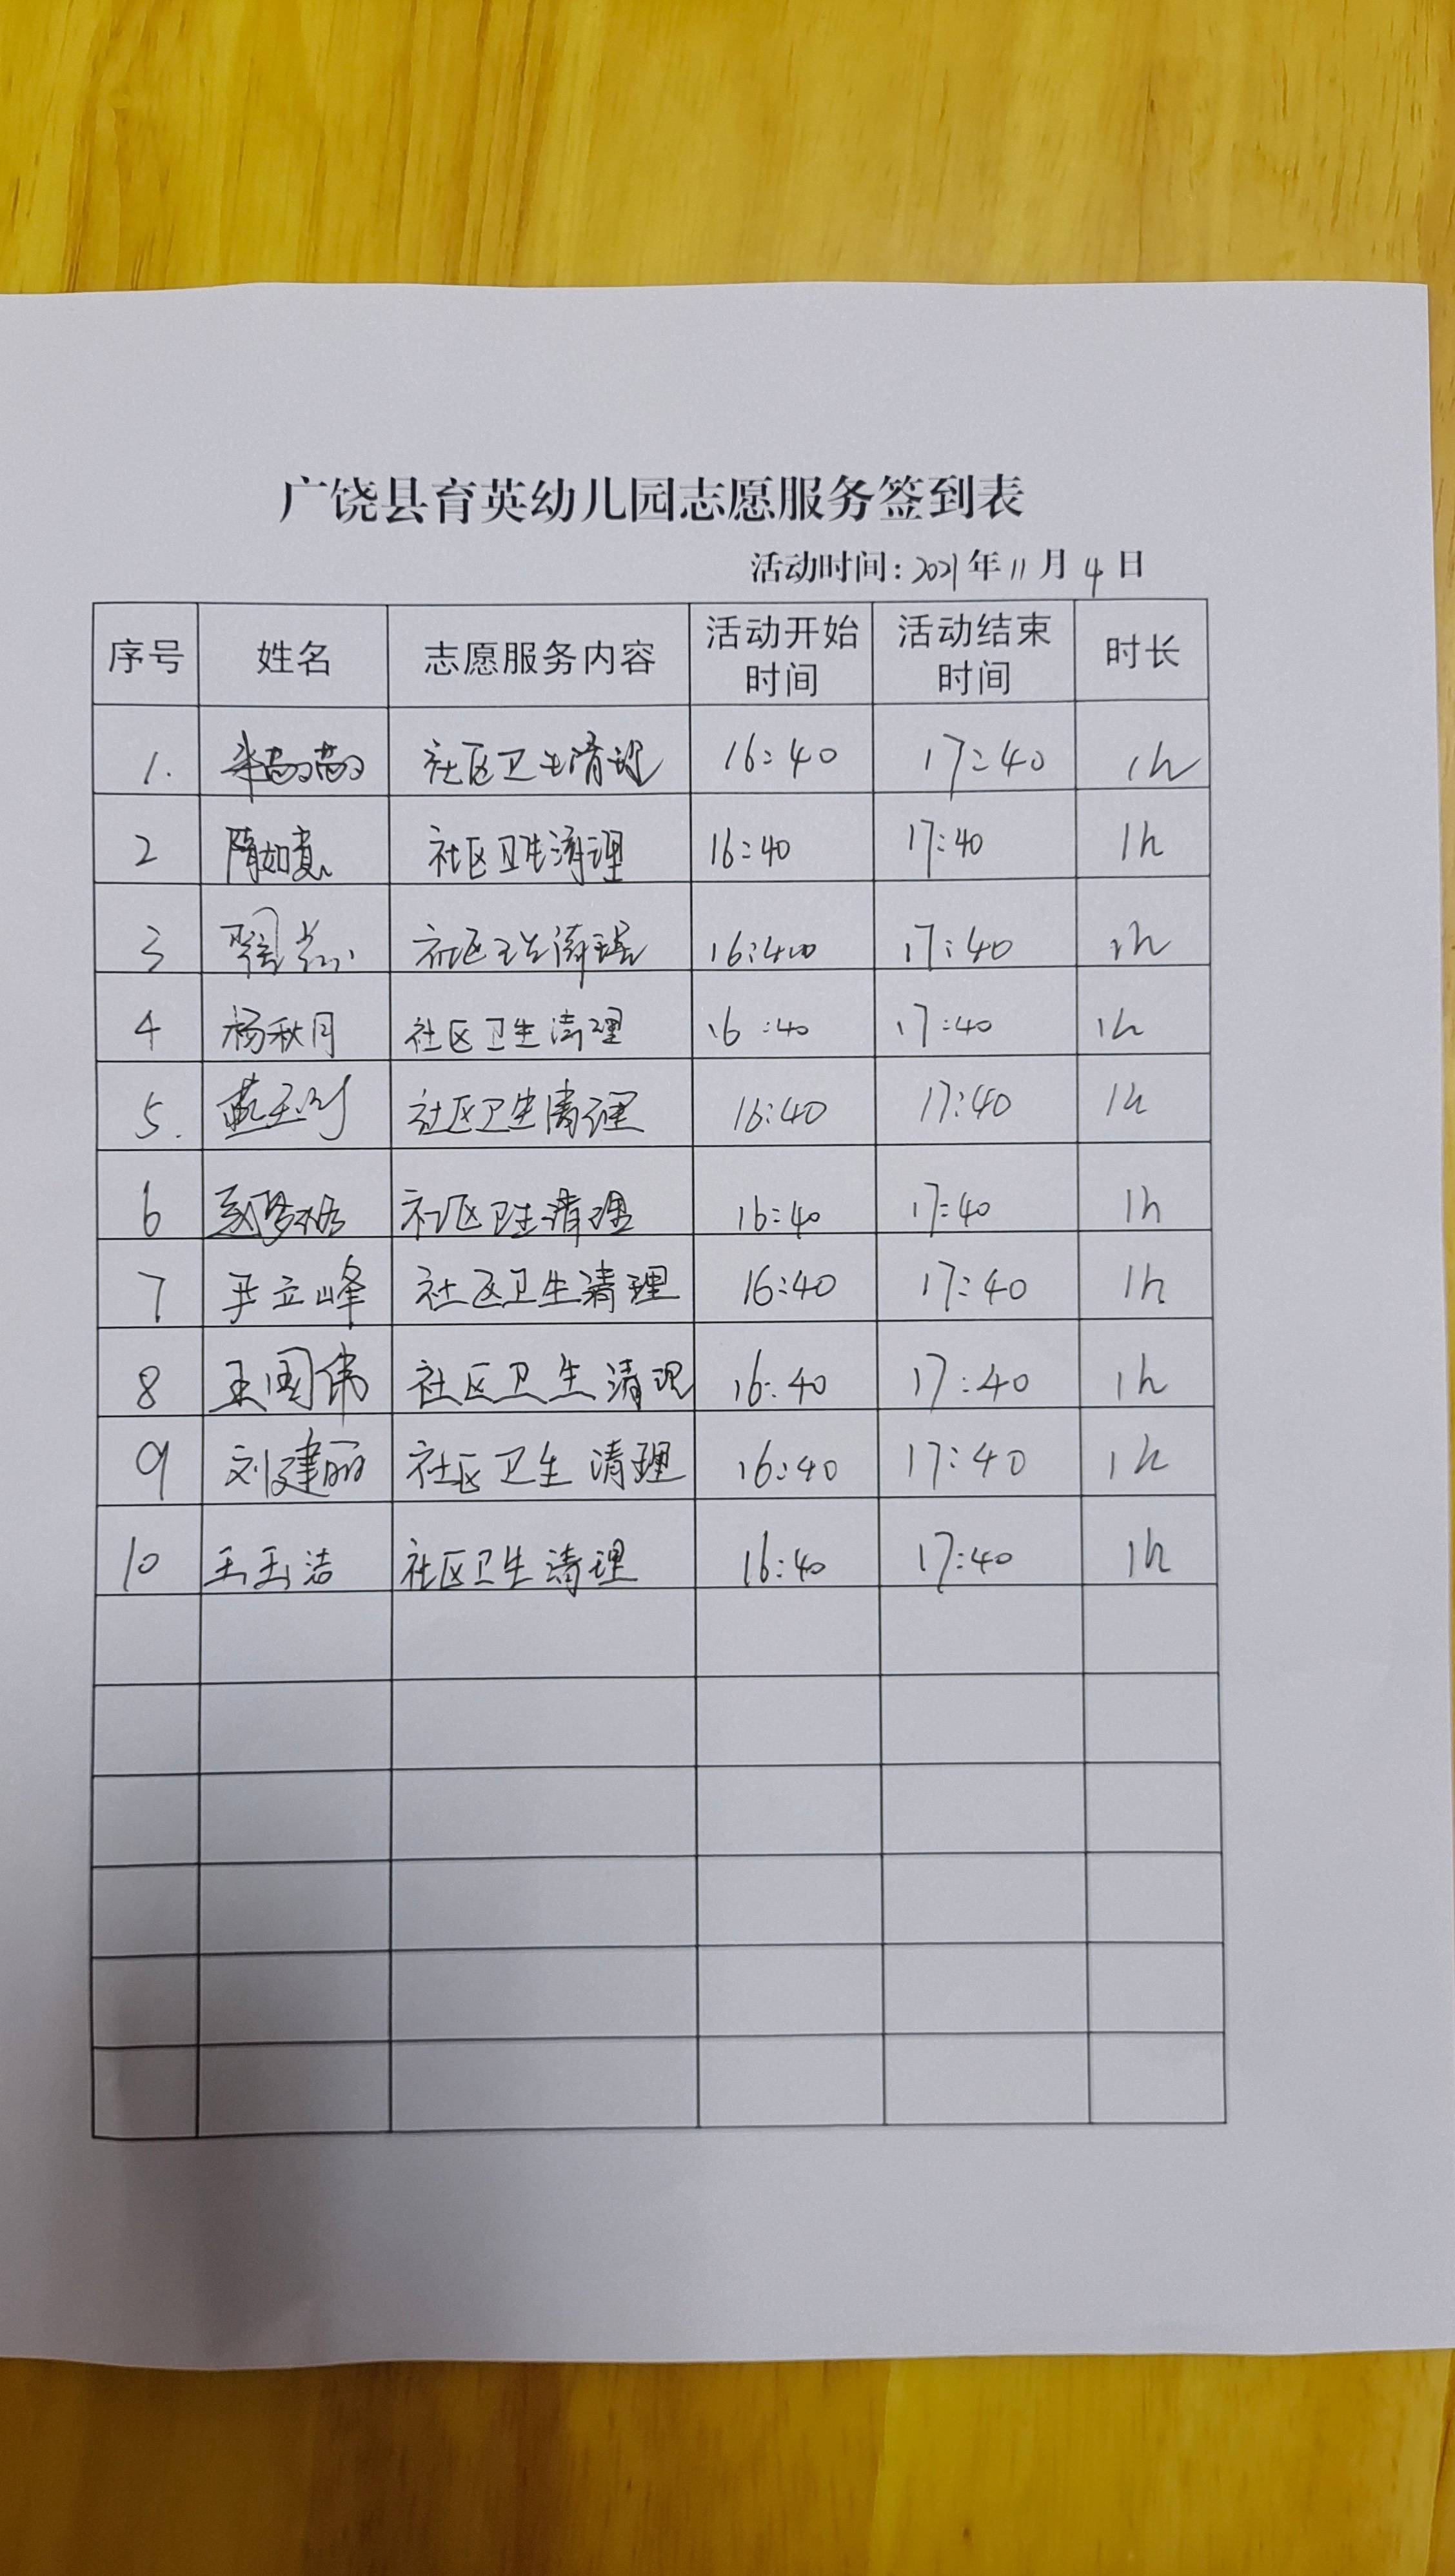 广饶县育英幼儿园志愿服务签到表
活动时间：2021年11月4日
序号 姓名 志愿服务内容 活动开始时间 活动结束时间 时长
1. 社区卫生清理 16:40 17:40 1h
2 隋如意 社区卫生清理 16:40 17:40 1h
3 社区卫生清理 17:40 1h
4 杨秋月 社区卫生清理 16:40 17:40 1h
5. 社区卫生清理 16:40 17:40 1h
6 社区卫生清理 16:40 17:40 1h
7 立峰 社区卫生清理 16:40 17:40 1h
8 王国伟 社区卫生清理 16:40 17:40 1h
9 刘建丽 社区卫生清理 16:40 17:40 1h
10 王玉洁 社区卫生清理 16:40 17:40 1h